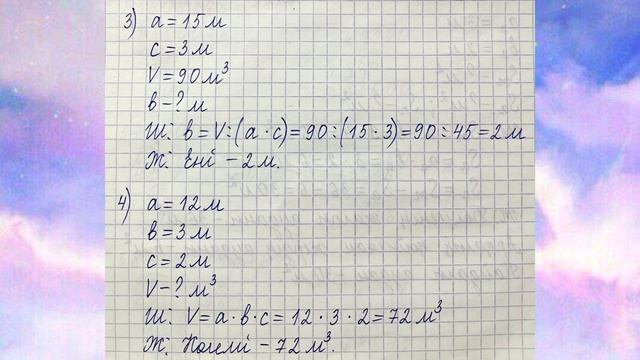 3) a = 15 м
c = 3 м
V = 90 м³
в – ? м
Ш: в = V : (a · c) = 90 : (15 · 3) = 90 : 45 = 2 м
Ж: Ені – 2 м.
4) a = 12 м
в = 3 м
c = 2 м
V – ? м³
Ш: V = a · в · c = 12 · 3 · 2 = 72 м³
Ж: Көлемі – 72 м³.